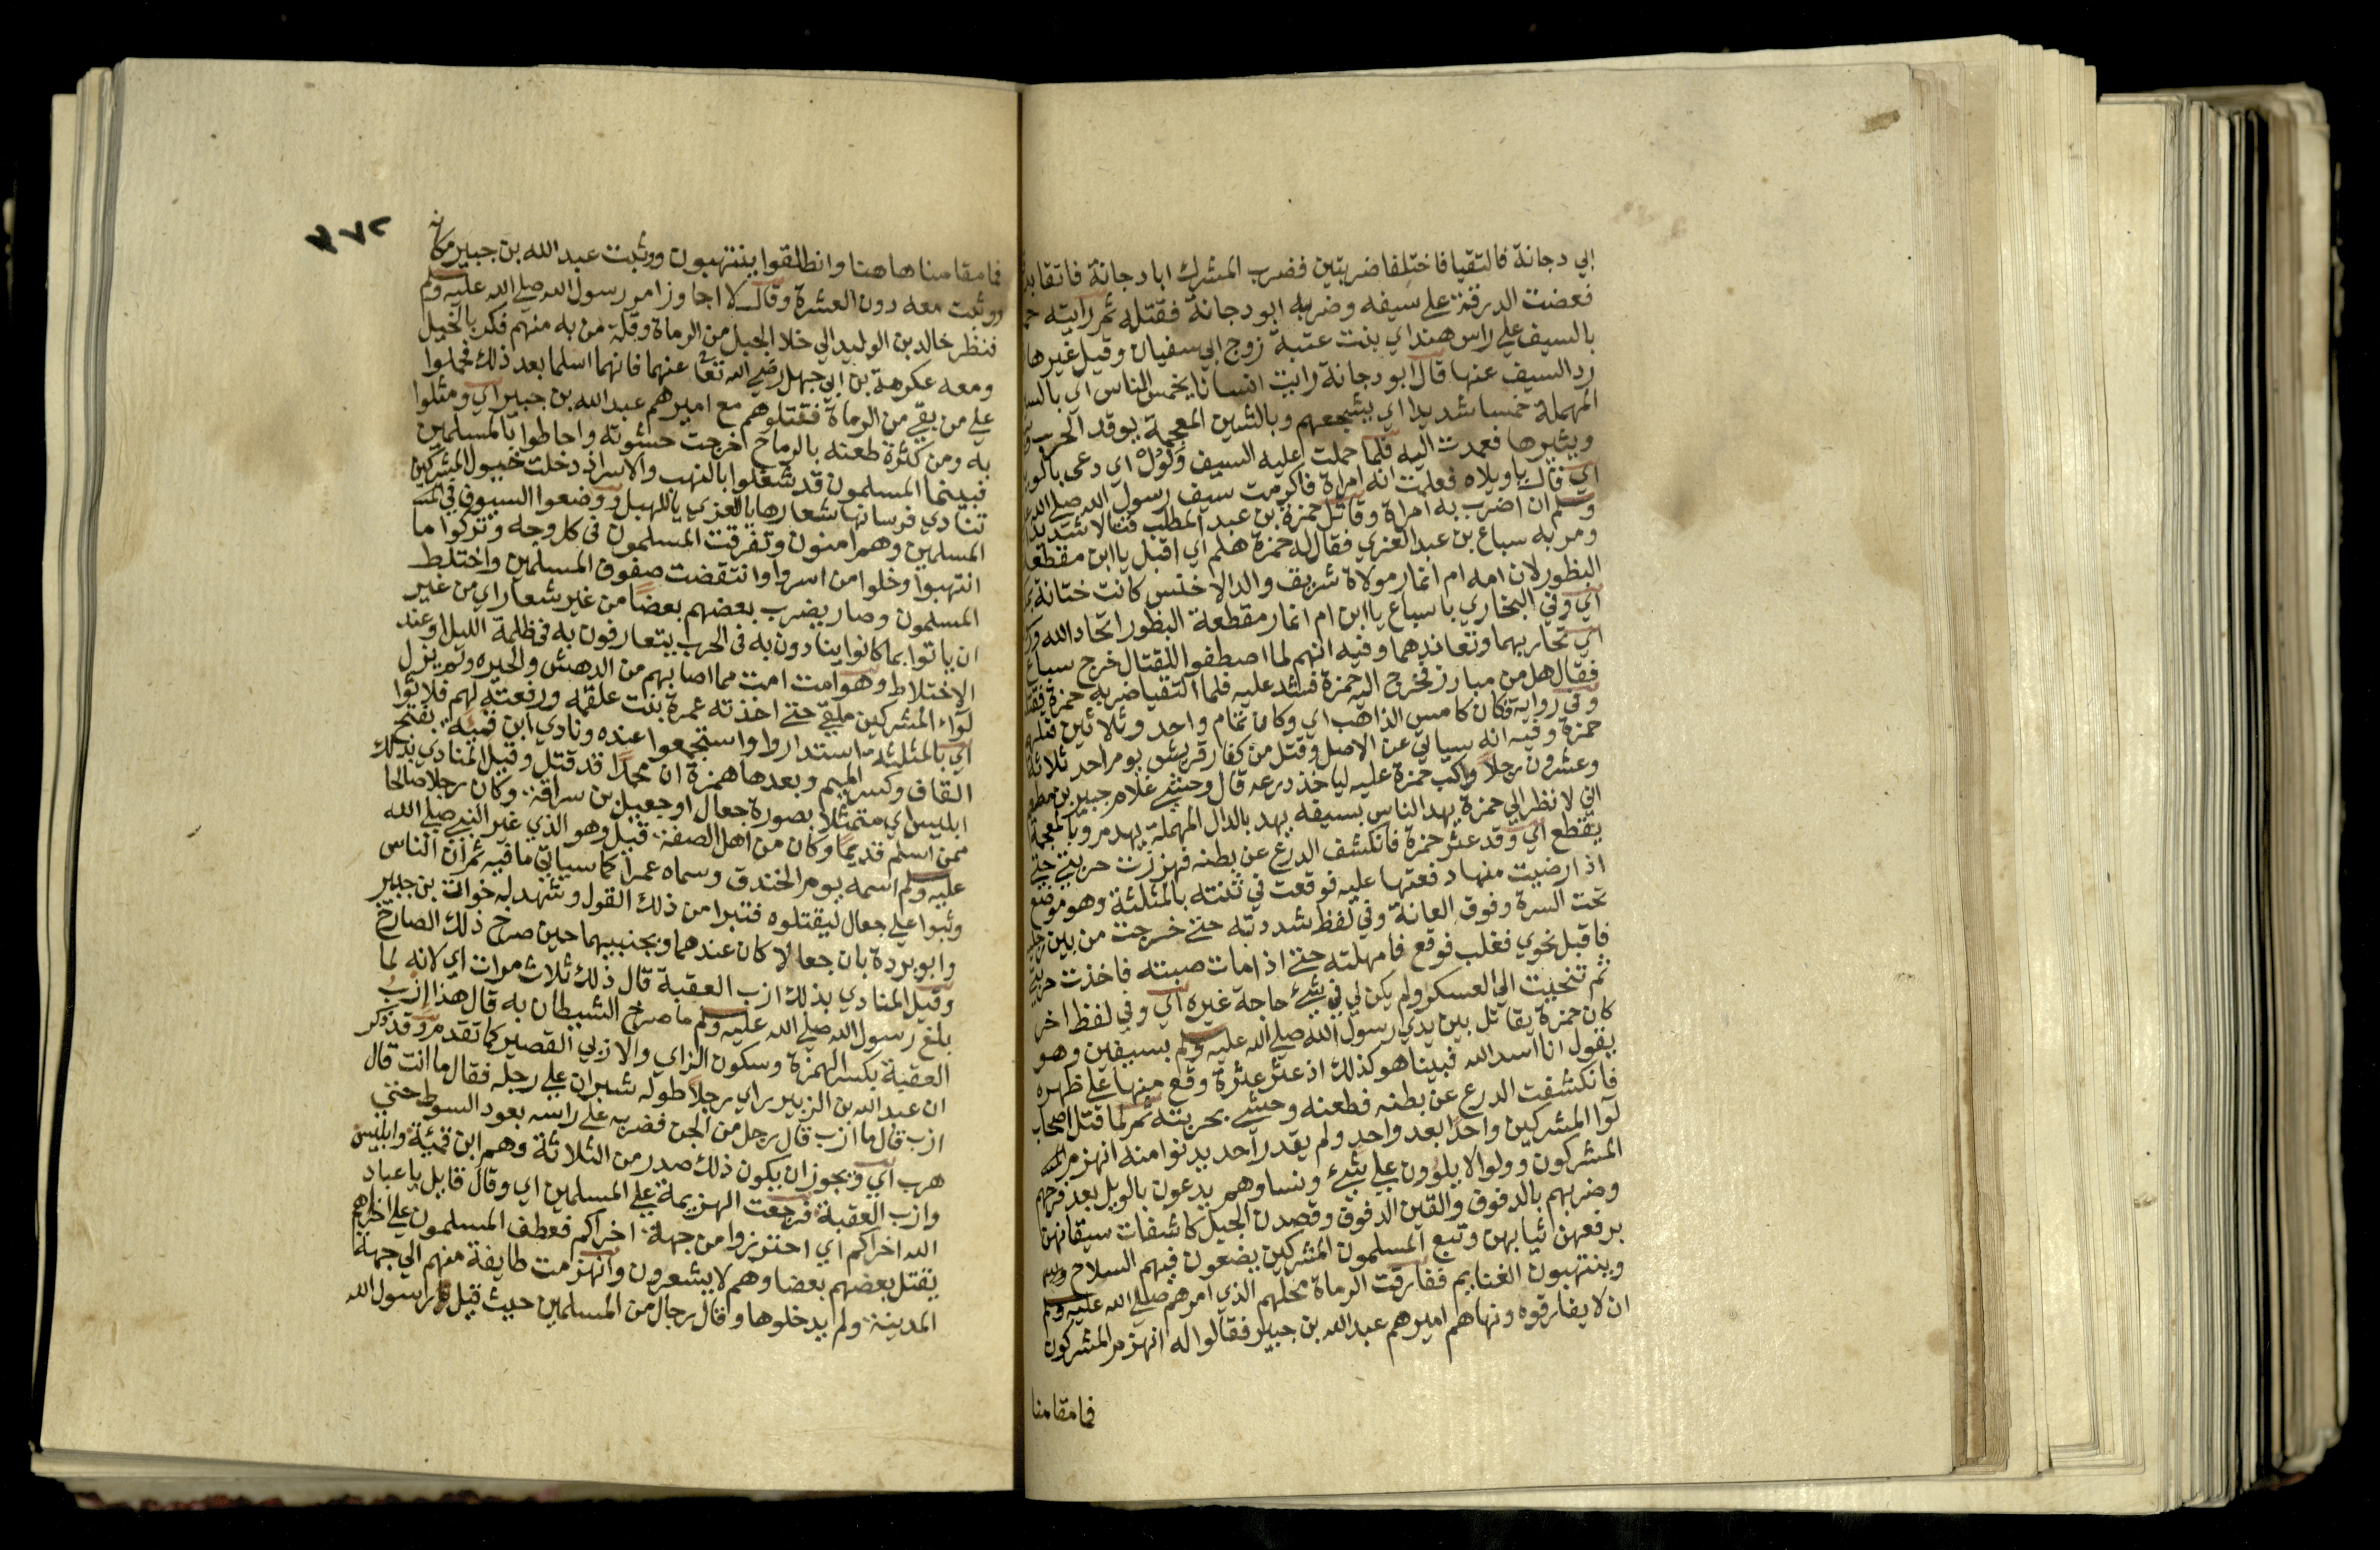 ابي دجانة فالتقيا فاختلفا ضربتين فضرب المشرك ابا دجانة فاتقا بد
فعضت الدرقة علي سيفه وضربه ابو دجانة فقتله ثم رايته
بالسيف علي راس هند اي بنت عتبة زوج ابي سفيان وقيل غيرها
رد السيف عنها قال ابو دجانة رايت انسانا يخمس الناس اي بالس
المهملة خمسا شديدا اي يشجعهم وبالشين المعجمة يوقد الحرب
ويثيرها فعمدت اليه فلما حملت عليه السيف ولول اي دعي بالو
اي قال ياويلاه فعلمت انه امراة فاكرمت سيف رسول الله صلي الله
وسلم ان اضرب به امراة وقاتل حمزة بن عبد المطلب قتالا شديدا
ومر به سباع بن عبد العزي فقال له حمزة هلم اي اقبل يا ابن مقطعة
البظور لان امه ام انمار مولاة شريف والد الاخنس كانت ختانة
اي وفي البخاري يا سباع يا ابن ام انمار مقطعة البظور اتحاد الله
اي تحاربهما وتعاندهما وفيه انهم لما اصطفوا للقتال خرج سباع
فقال هل من مبارز فخرج اليه حمزة فشد عليه فلما التقيا ضربه حمزة فقت
وفي رواية فكان كامس الذاهب اي وكان تمام واحد وثلاثين قتله
حمزة وفيه انه سياتي عن الاصل وقتل من كفار قريش يوم احد ثلاثة
وعشرون رجلا واكب حمزة عليه لياخذ درعه قال وحشي غلام جبير بن مطع
اني لانظر الي حمزة يهد الناس بسيفه يهد بالدال المهملة يهدم وبالمعجمة
يقطع اي وقد عثر حمزة فانكشف الدرع عن بطنه فهززت حربتي حتي
اذا رضيت منها دفعتها عليه فوقعت في ثنته بالمثلثة وهو موضع
تحت السرة وفوق العانة وفي لفظ شددته حتي خرجت من بين رجل
فاقبل نحوي فغلب فوقع فامهلته حتي اذا مات صبته فاخذت حربتي
ثم تنحيت الي العسكر ولم يكن لي في شئ حاجة غيره اي وفي لفظ اخر
كان حمزة يقاتل بين يدي رسول الله صلي الله عليه وسلم بسيفين وهو
يقول انا اسد الله فبينا هو كذلك اذ عثر عثرة وقع منها علي ظهره
فانكشفت الدرع عن بطنه فطعنه وحشي بحربته ثم لما قتل اصحاب
لوا المشركين واحدا بعد واحد ولم يقدر احد يدنوا منه انهزم
المشركون وولوا لا يلوون علي شئ ونساوهم يدعون بالويل بعد فرحهم
وضربهم بالدفوف والقين الدفوف وقصدن الجبل كاشفات سيقانهن
برفعهن ثيابهن وتبع المسلمون المشركين يضعون فيهم السلاح
وينتهبون الغنايم ففارقت الرماة محلهم الذي امرهم صلي الله عليه وسلم
ان لا يفارقوه ونهاهم اميرهم عبد الله بن جبير فقالوا له انهزم المشركون
فما مقامنا
٣٧٢
فما مقامنا هاهنا وانطلقوا ينتهبون ووثبت عبد الله بن جبير مكانه
ووثبت معه دون العشرة وقال لا اجاوز امر رسول الله صلي الله عليه وسلم
فنظر خالد بن الوليد الي خلا الجبل من الرماة وقلة من به منهم فكر بالخيل
ومعه عكرمة بن ابي جهل رضي الله تعا عنهما فانهما اسلما بعد ذلك فحملوا
علي من بقي من الرماة فقتلوهم مع اميرهم عبد الله بن جبير اي ومثلوا
به ومن كثرة طعنه بالرماح اخرجت حشوته واحاطوا بالمسلمين
فبينما المسلمون قد شغلوا بالنهب والاسر اذ دخلت خيول المشركين
تنادي فرسانها شعارها ياللعزي ياللهبل ووضعوا السيوف في
المسلمين وهم امنون وتفرقت المسلمون في كل وجه وتركوا ما
انتهبوا وخلوا من اسروا وانتقضت صفوف المسلمين واختلط
المسلمون وصار يضرب بعضهم بعضا من غير شعار اي من غير
ان ياتوا بما كانوا ينادون به في الحرب يتعارفون به في ظلمة الليل او عند
الاختلاط وهو امت امت مما اصابهم من الدهش والحيره ولم يزل
لواء المشركين ملقي حتي اخذته عمرة بنت علقمة ورفعته لهم فلاثوا
اي بالمثلثة استداروا واستجمعوا عنده ونادي ابن قمئة بفتح
القاف وكسر الميم وبعدها همزة ان محمدا قد قتل وقيل المنادي بذلك
ابليس اي متمثلا بصورة جعال او جعيل بن سراقة وكان رجلا صالحا
ممن اسلم قديما وكان من اهل الصفة قيل وهو الذي غير النبي صلي الله
عليه وسلم اسمه يوم الخندق وسماه عمرا كما سياتي ما فيه ثم ان الناس
وثبوا علي جعال ليقتلوه فتبرا من ذلك القول وشهد له خوات بن جبير
وابو بردة بان جعالا كان عندهما وبجنبيهما حين صرح ذلك الصارخ
وقيل المنادي بذلك ازب العقبة قال ذلك ثلاث مرات اي لانه لما
بلغ رسول الله صلي الله عليه وسلم ما صرخ الشيطان به قال هذا ازب
العقبة بكسر الهمزة وسكون الزاي والازبي القصير كما تقدم وقد ذكر
ان عبد الله بن الزبير راي رجلا طوله شبران علي رجله فقال ما انت قال
ازب قال ما ازب قال رجل من الجن فضربه علي راسه بعود السوط حتي
هرب اي ويجوز ان يكون ذلك صدر من الثلاثة وهم ابن قمئة وابليس
وازب العقبة فرجعت الهزيمة علي المسلمين اي وقال قايل يا عباد
الله اخراكم اي احترزوا من جهة اخراكم فعطف المسلمون علي اخراهم
يقتل بعضهم بعضا وهم لا يشعرون وانهزمت طايفة منهم الي جهة
المدينة ولم يدخلوها وقال رجال من المسلمين حيث قيل رسول الله